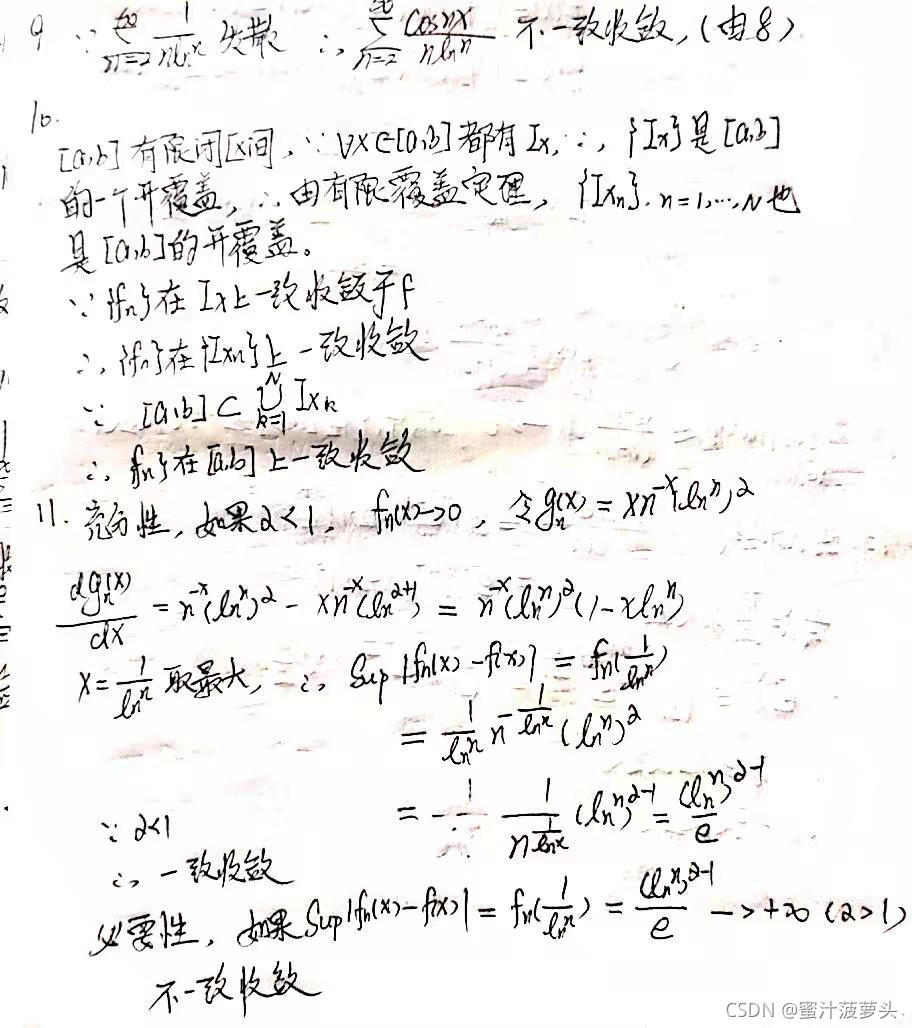 9 ∵ ∑_{n=2}^{∞} 1/(n ln^n) 发散 ∴ ∑_{n=2}^{∞} cosnx/(n ln^n) 不一致收敛,(由8)
10.
[a,b]有限闭区间,∵ ∀x∈[a,b]都有Ix, ∴, {Ix}是[a,b]
的一个开覆盖, ∴由有限覆盖定理, {Ixn}, n=1,…,N也
是[a,b]的开覆盖。
∵ {fn}在Ix上一致收敛于f
∴ {fn}在{Ixn}上一致收敛
∵ [a,b] ⊂ ⋃_{k=1}^{N} Ixk
∴ fn}在[a,b]上一致收敛
11. 充分性, 如果α<1, fn(x)→0, 令gn(x) = xn^{-x}(ln^n)^α
dgn(x)/dx = n^{-x}(ln^n)^α - xn^{-x}(ln^{α+1}) = n^{-x}(ln^n)^α(1-xln^n)
x = 1/ln^n 取最大, ∴, Sup|fn(x)-f(x)| = fn(1/ln^n)
= 1/ln^n n^{-1/ln^n} (ln^n)^α
∵ α<1 = 1/n^{1/ln^n} (ln^n)^{α-1} = (ln^n)^{α-1}/e
∴, 一致收敛
必要性, 如果Sup|fn(x)-f(x)| = fn(1/ln^n) = (ln^n)^{α-1}/e → +∞ (α>1)
不一致收敛
CSDN @蜜汁菠萝头